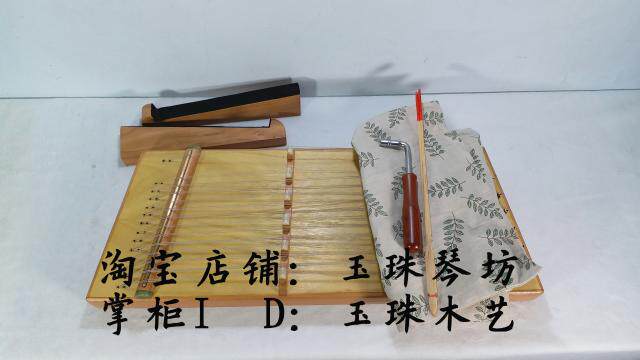 淘宝店铺：玉珠琴坊
掌柜I D：玉珠木艺